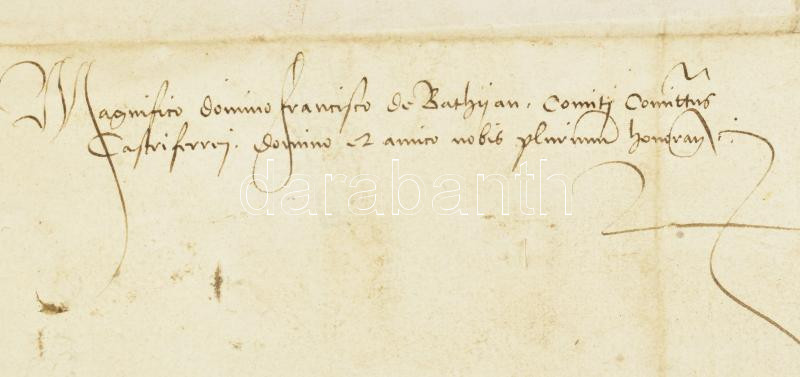 Magnifico domino Francisco de Bathijan. Comiti Comittus
Castriferrei. domino et amico nobis plurimum honoran.
darabanth